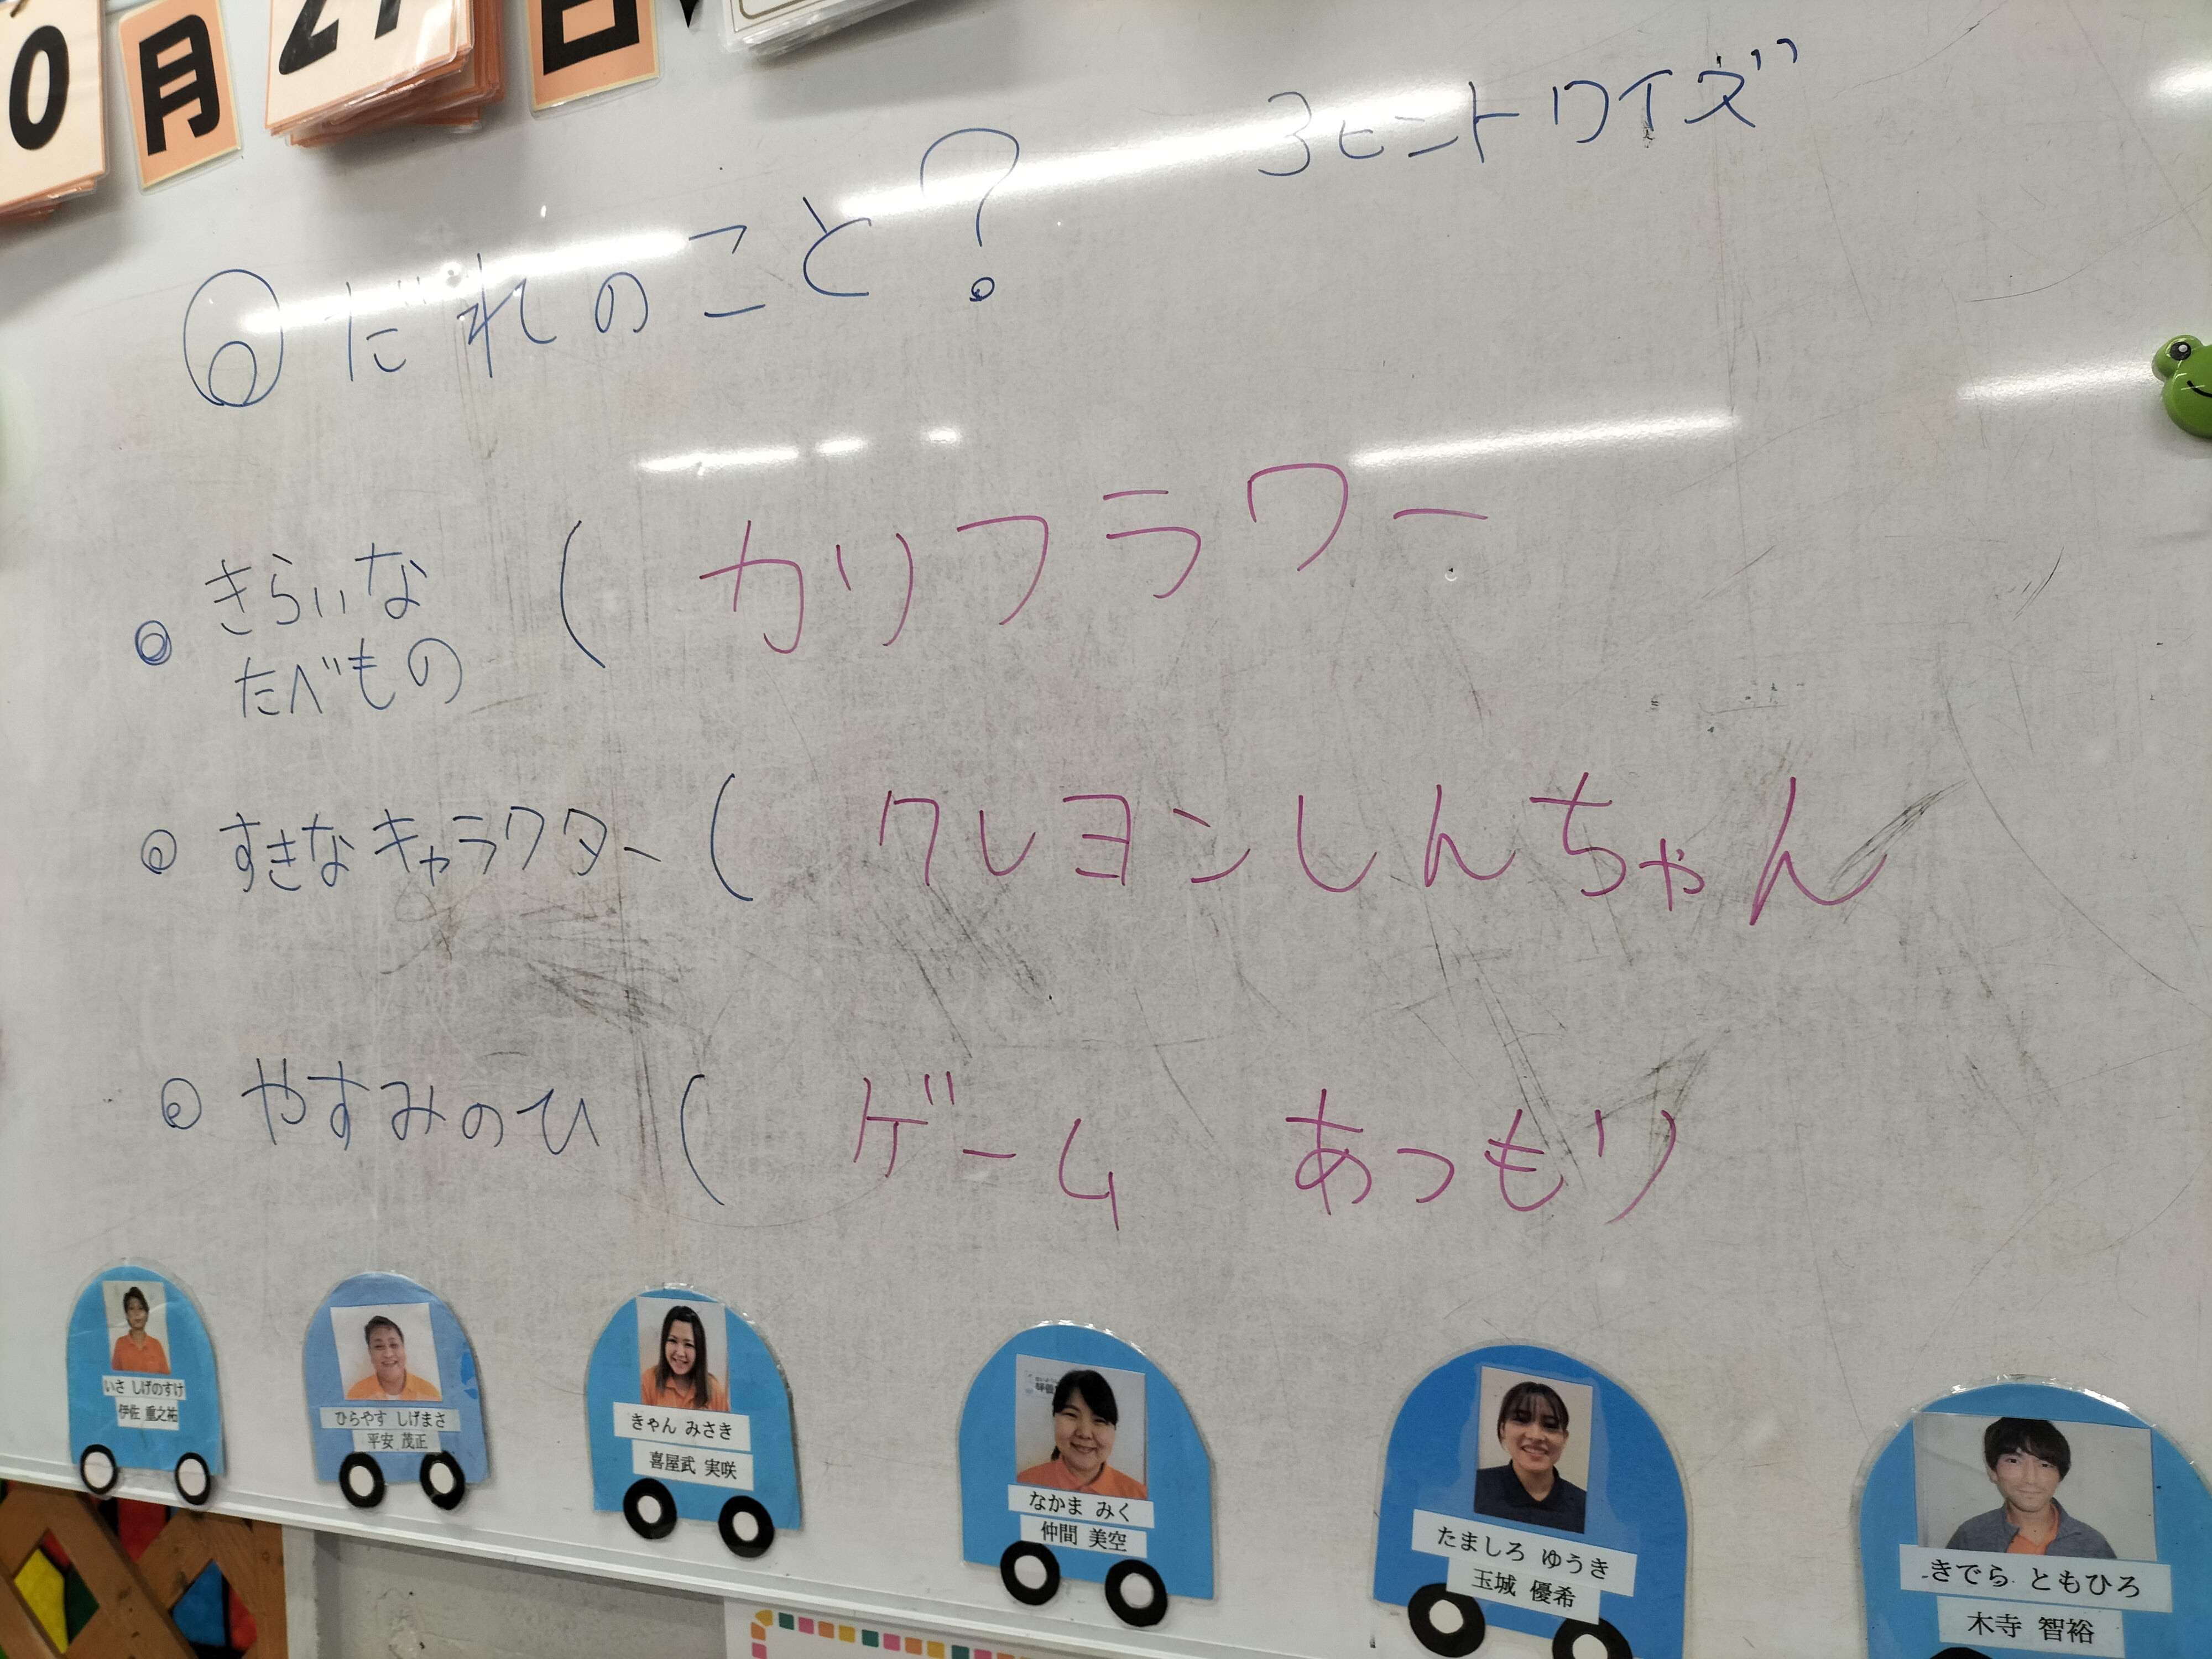 0月 21日
3ヒントワイズ
◎だれのこと?
◎ きらいな ( カリフラワー
たべもの
◎ すきなキャラクター ( クレヨンしんちゃん
◎ やすみのひ ( ゲーム あつもり
いさ しげのすけ
伊佐 重之祐
ひらやす しげまさ
平安 茂正
きゃん みさき
喜屋武 実咲
なかま みく
仲間 美空
たましろ ゆうき
玉城 優希
きでら ともひろ
木寺 智裕